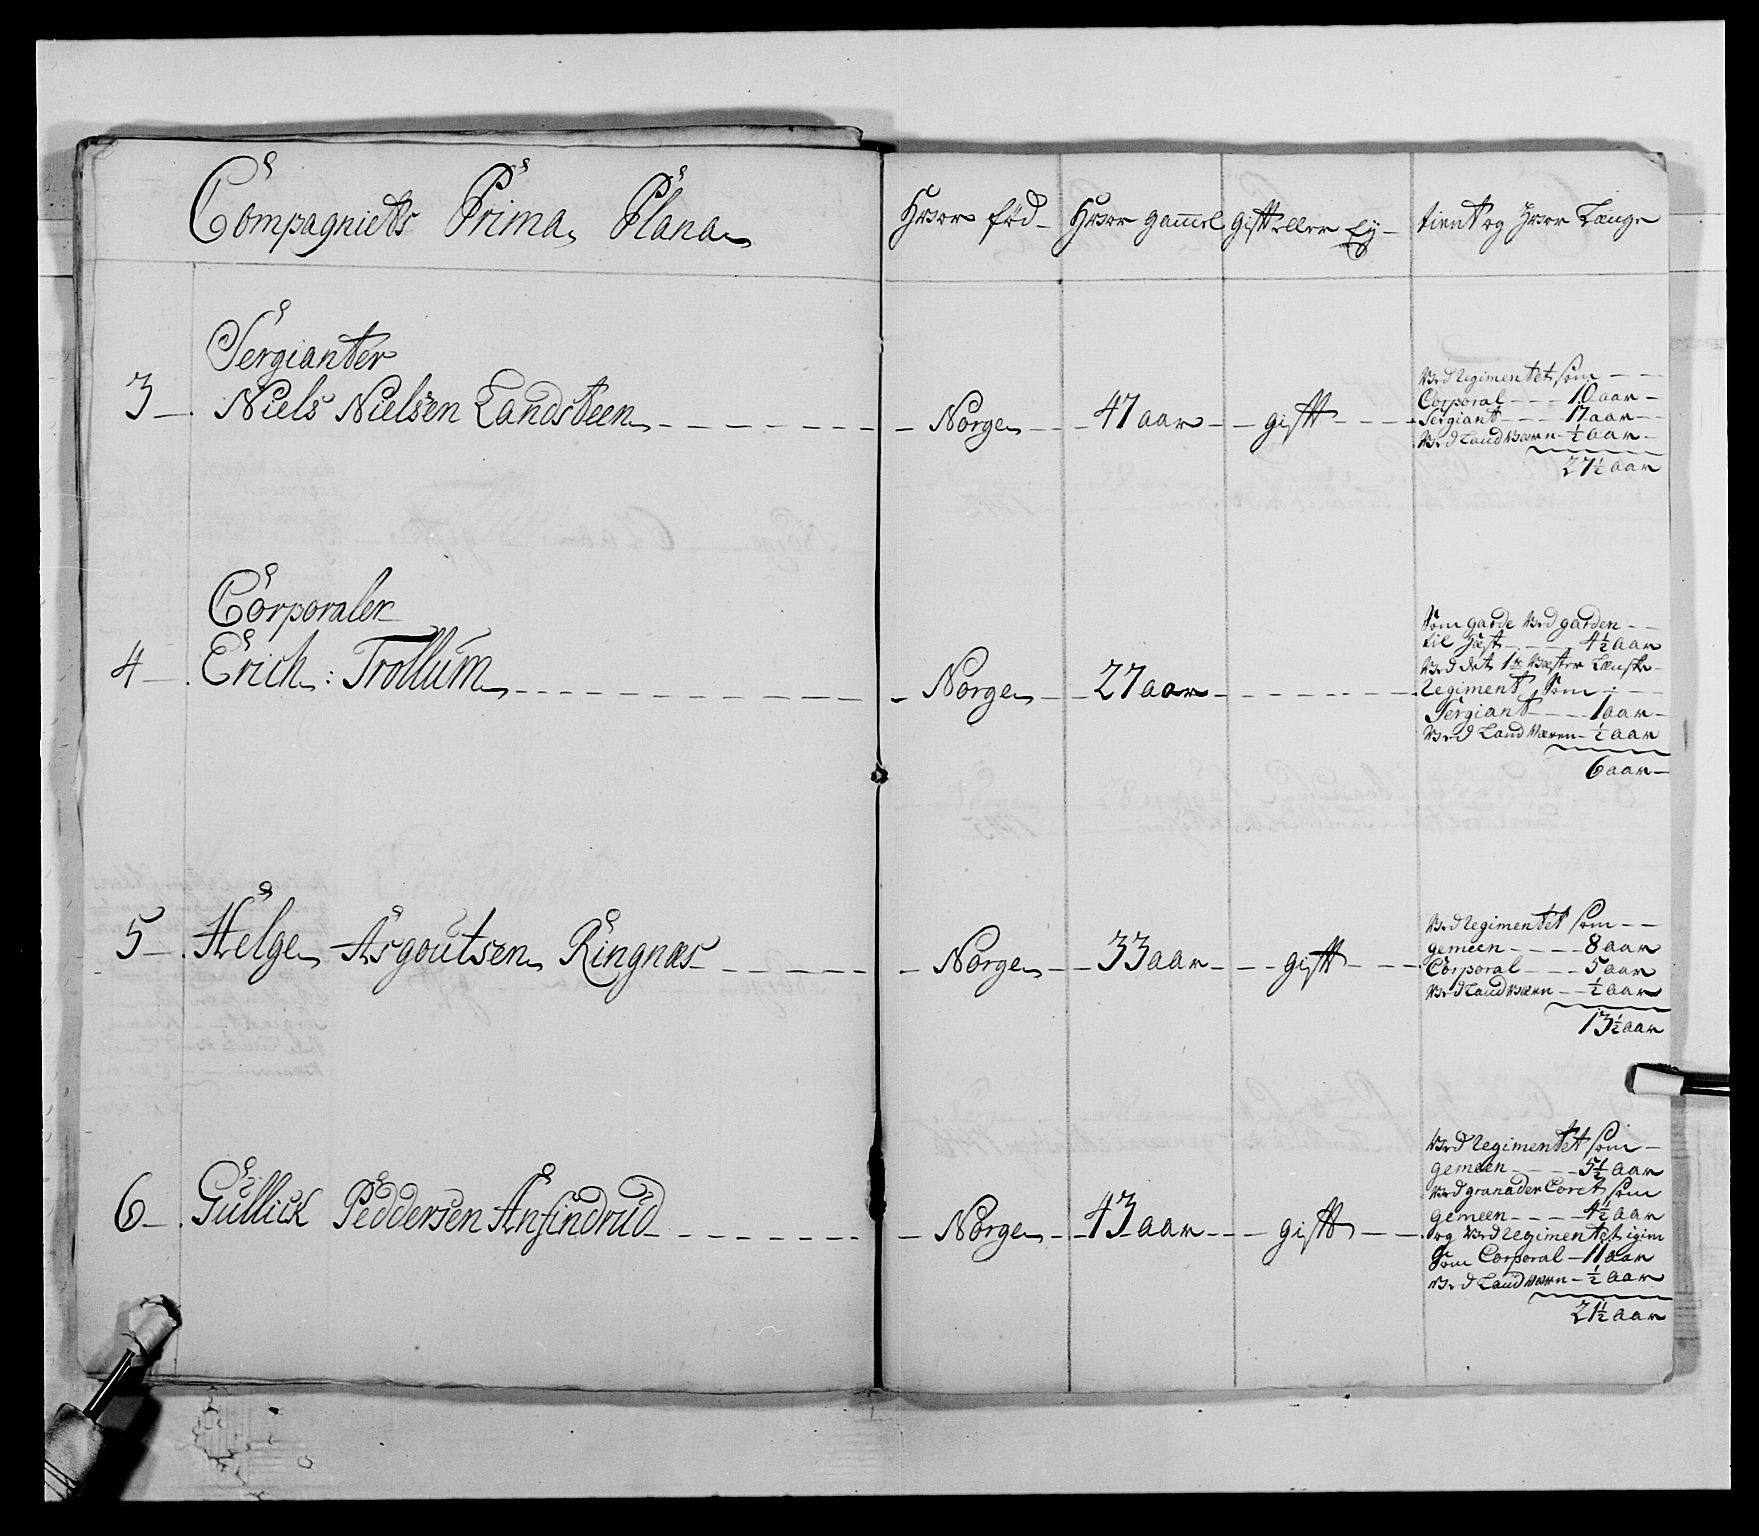 Compagniets Prima Plana
Hvor fød
Hvor gammel
gift eller Ey
tient og hvor Længe
Sergianter
3 Niels Nielsen Landsteen
Norge
47 aar
gift
Ved Regimentet som
Corporal 10 aar
Sergiant 17 aar
Ved Landværn ½ aar
27½ aar
Corporaler
4 Erich: Trollum
Norge
27 aar
Som garde ved garden
til Hæst 4½ aar
Ved det 1te Wæster Lenske
Regiment Som
Sergiant 1 aar
Ved Landværen ½ aar
6 aar
5 Helge Asgoutsen Ringnæs
Norge
33 aar
gift
Ved Regimentet som
gemeen 8 aar
Corporal 5 aar
Ved Landværn ½ aar
13½ aar
6 Gullick Peddersen Ansindrud
Norge
43 aar
gift
Ved Regimentet som
gemeen 5½ aar
Ved granader Coret som
gemeen 4½ aar
og ved Regimentet igien
som Corporal 11 aar
Ved Landværn ½ aar
21½ aar